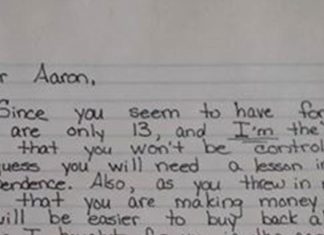 Aaron,
Since you seem to have for
are only 13, and I'm the
that you won't be control
you will need a lesson in
Also, as you threw in
that you are making money
will be easier to buy back a